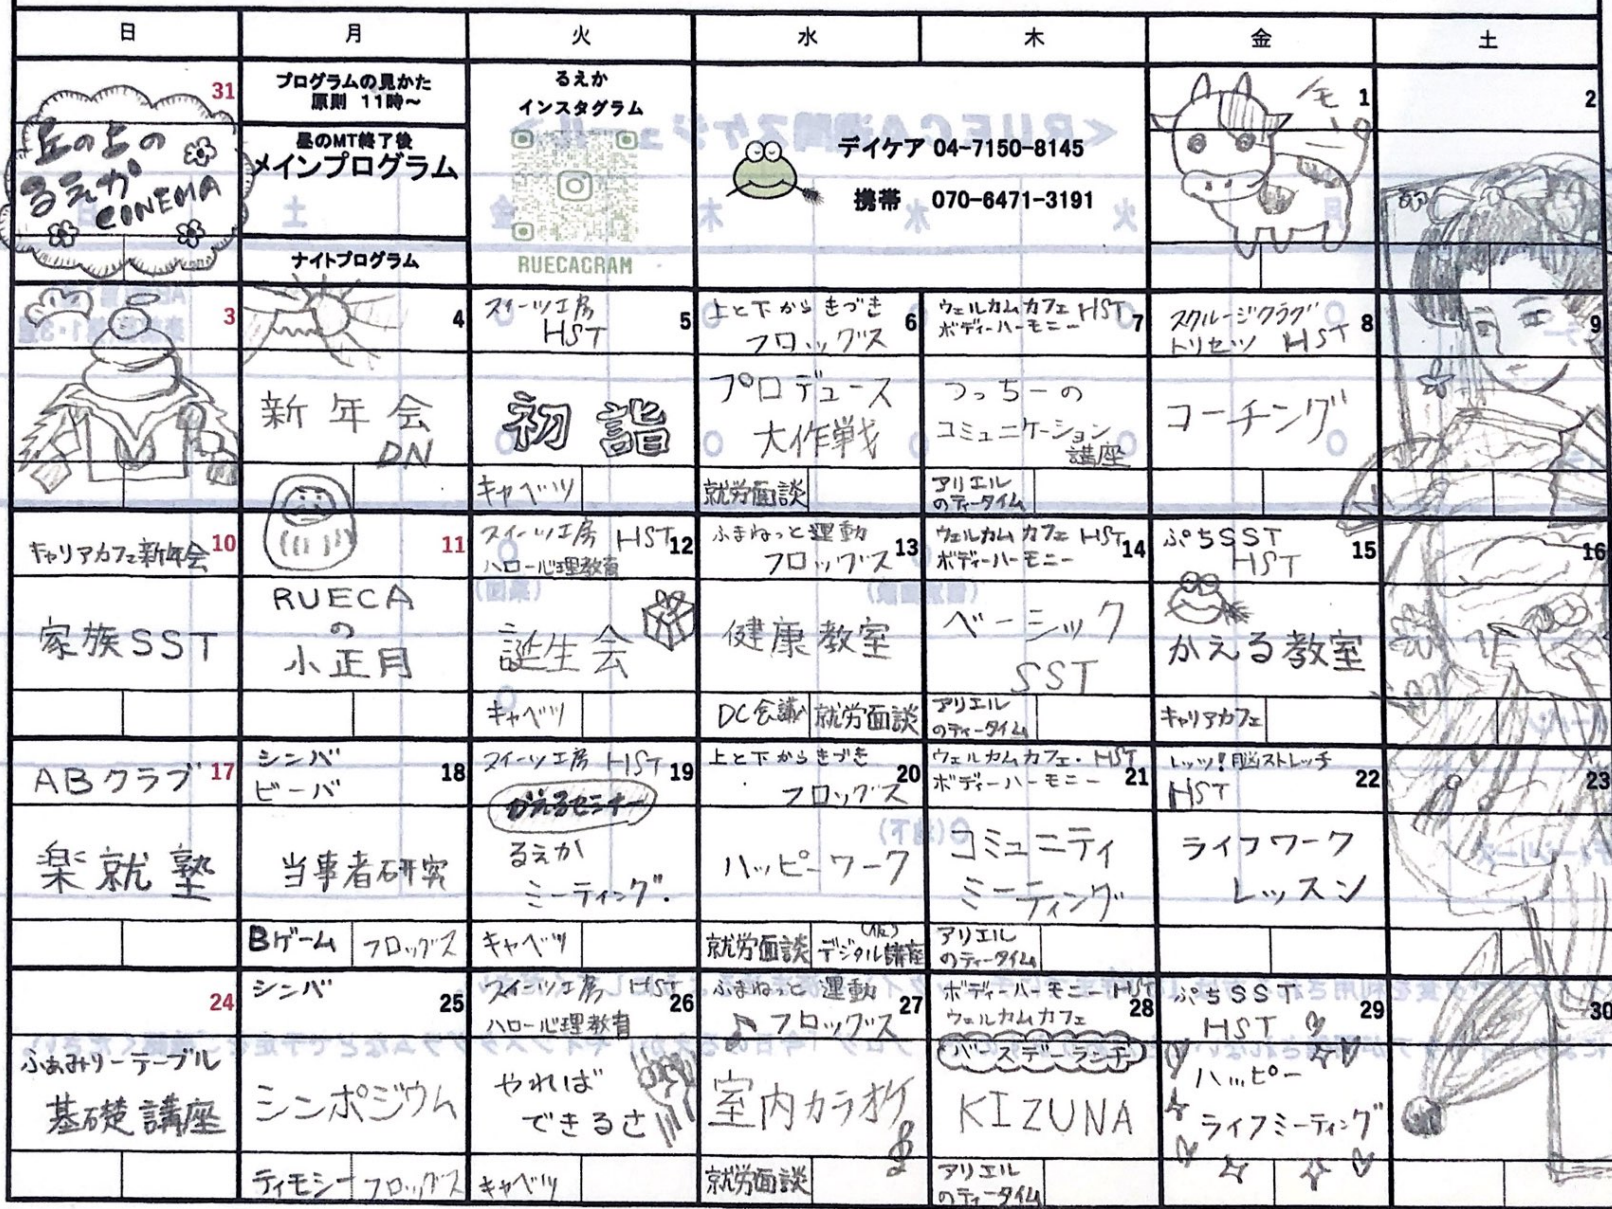 日 月 火 水 木 金 土
31
丘の上の
るえか
CINEMA
プログラムの見かた
原則 11時～
昼のMT終了後
メインプログラム
ナイトプログラム
るえか
インスタグラム
RUECAGRAM
デイケア 04-7150-8145
携帯 070-6471-3191
1
モー
2
3
4
新年会
DN
5
スイーツ工房
HST
初詣
キャベツ
6
上と下からきづき
フロッグス
プロデュース
大作戦
就労面談
7
ウェルカムカフェ HST
ボディーハーモニー
つっちーの
コミュニケーション
講座
アリエル
のティータイム
8
スクルージクラブ
トリセツ HST
コーチング
9
10
キャリアカフェ新年会
家族SST
11
RUECA
の
小正月
12
スイーツ工房 HST
ハロー心理教育
誕生会
キャベツ
13
ふまねっと運動
フロッグス
健康教室
DC会議 就労面談
14
ウェルカムカフェ HST
ボディーハーモニー
ベーシック
SST
アリエル
のティータイム
15
ぷちSST
HST
かえる教室
キャリアカフェ
16
17
ABクラブ
楽就塾
18
シンバ
ビーバ
当事者研究
Bゲーム フロッグス
19
スイーツ工房 HST
かえるセミナー
るえか
ミーティング.
キャベツ
20
上と下からきづき
フロッグス
ハッピーワーク
就労面談 (仮)
デジタル講座
21
ウェルカムカフェ・HST
ボディーハーモニー
コミュニティ
ミーティング
アリエル
のティータイム
22
レッツ!脳ストレッチ
HST
ライフワーク
レッスン
23
24
ふぁみりーテーブル
基礎講座
25
シンバ
シンポジウム
ティモシー フロッグス
26
スイーツ工房 HST
ハロー心理教育
やれば
できるさ
キャベツ
27
ふまねっと運動
フロッグス
室内カラオケ
就労面談
28
ボディーハーモニー HST
ウェルカムカフェ
バースデーランチ
KIZUNA
アリエル
のティータイム
29
ぷちSST
HST
ハッピー
ライフミーティング
30